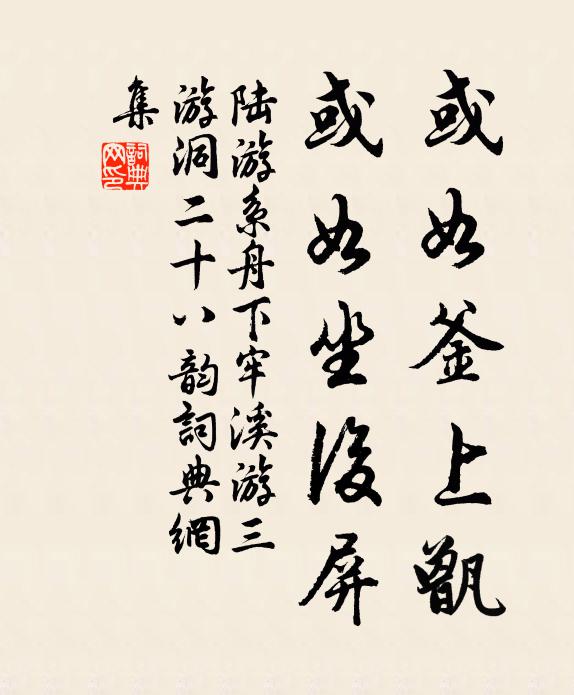 或如釜上甑
或如坐後屏
陆游系舟下牢溪游三
游洞二十八韵詞典網
集
詞典
网印